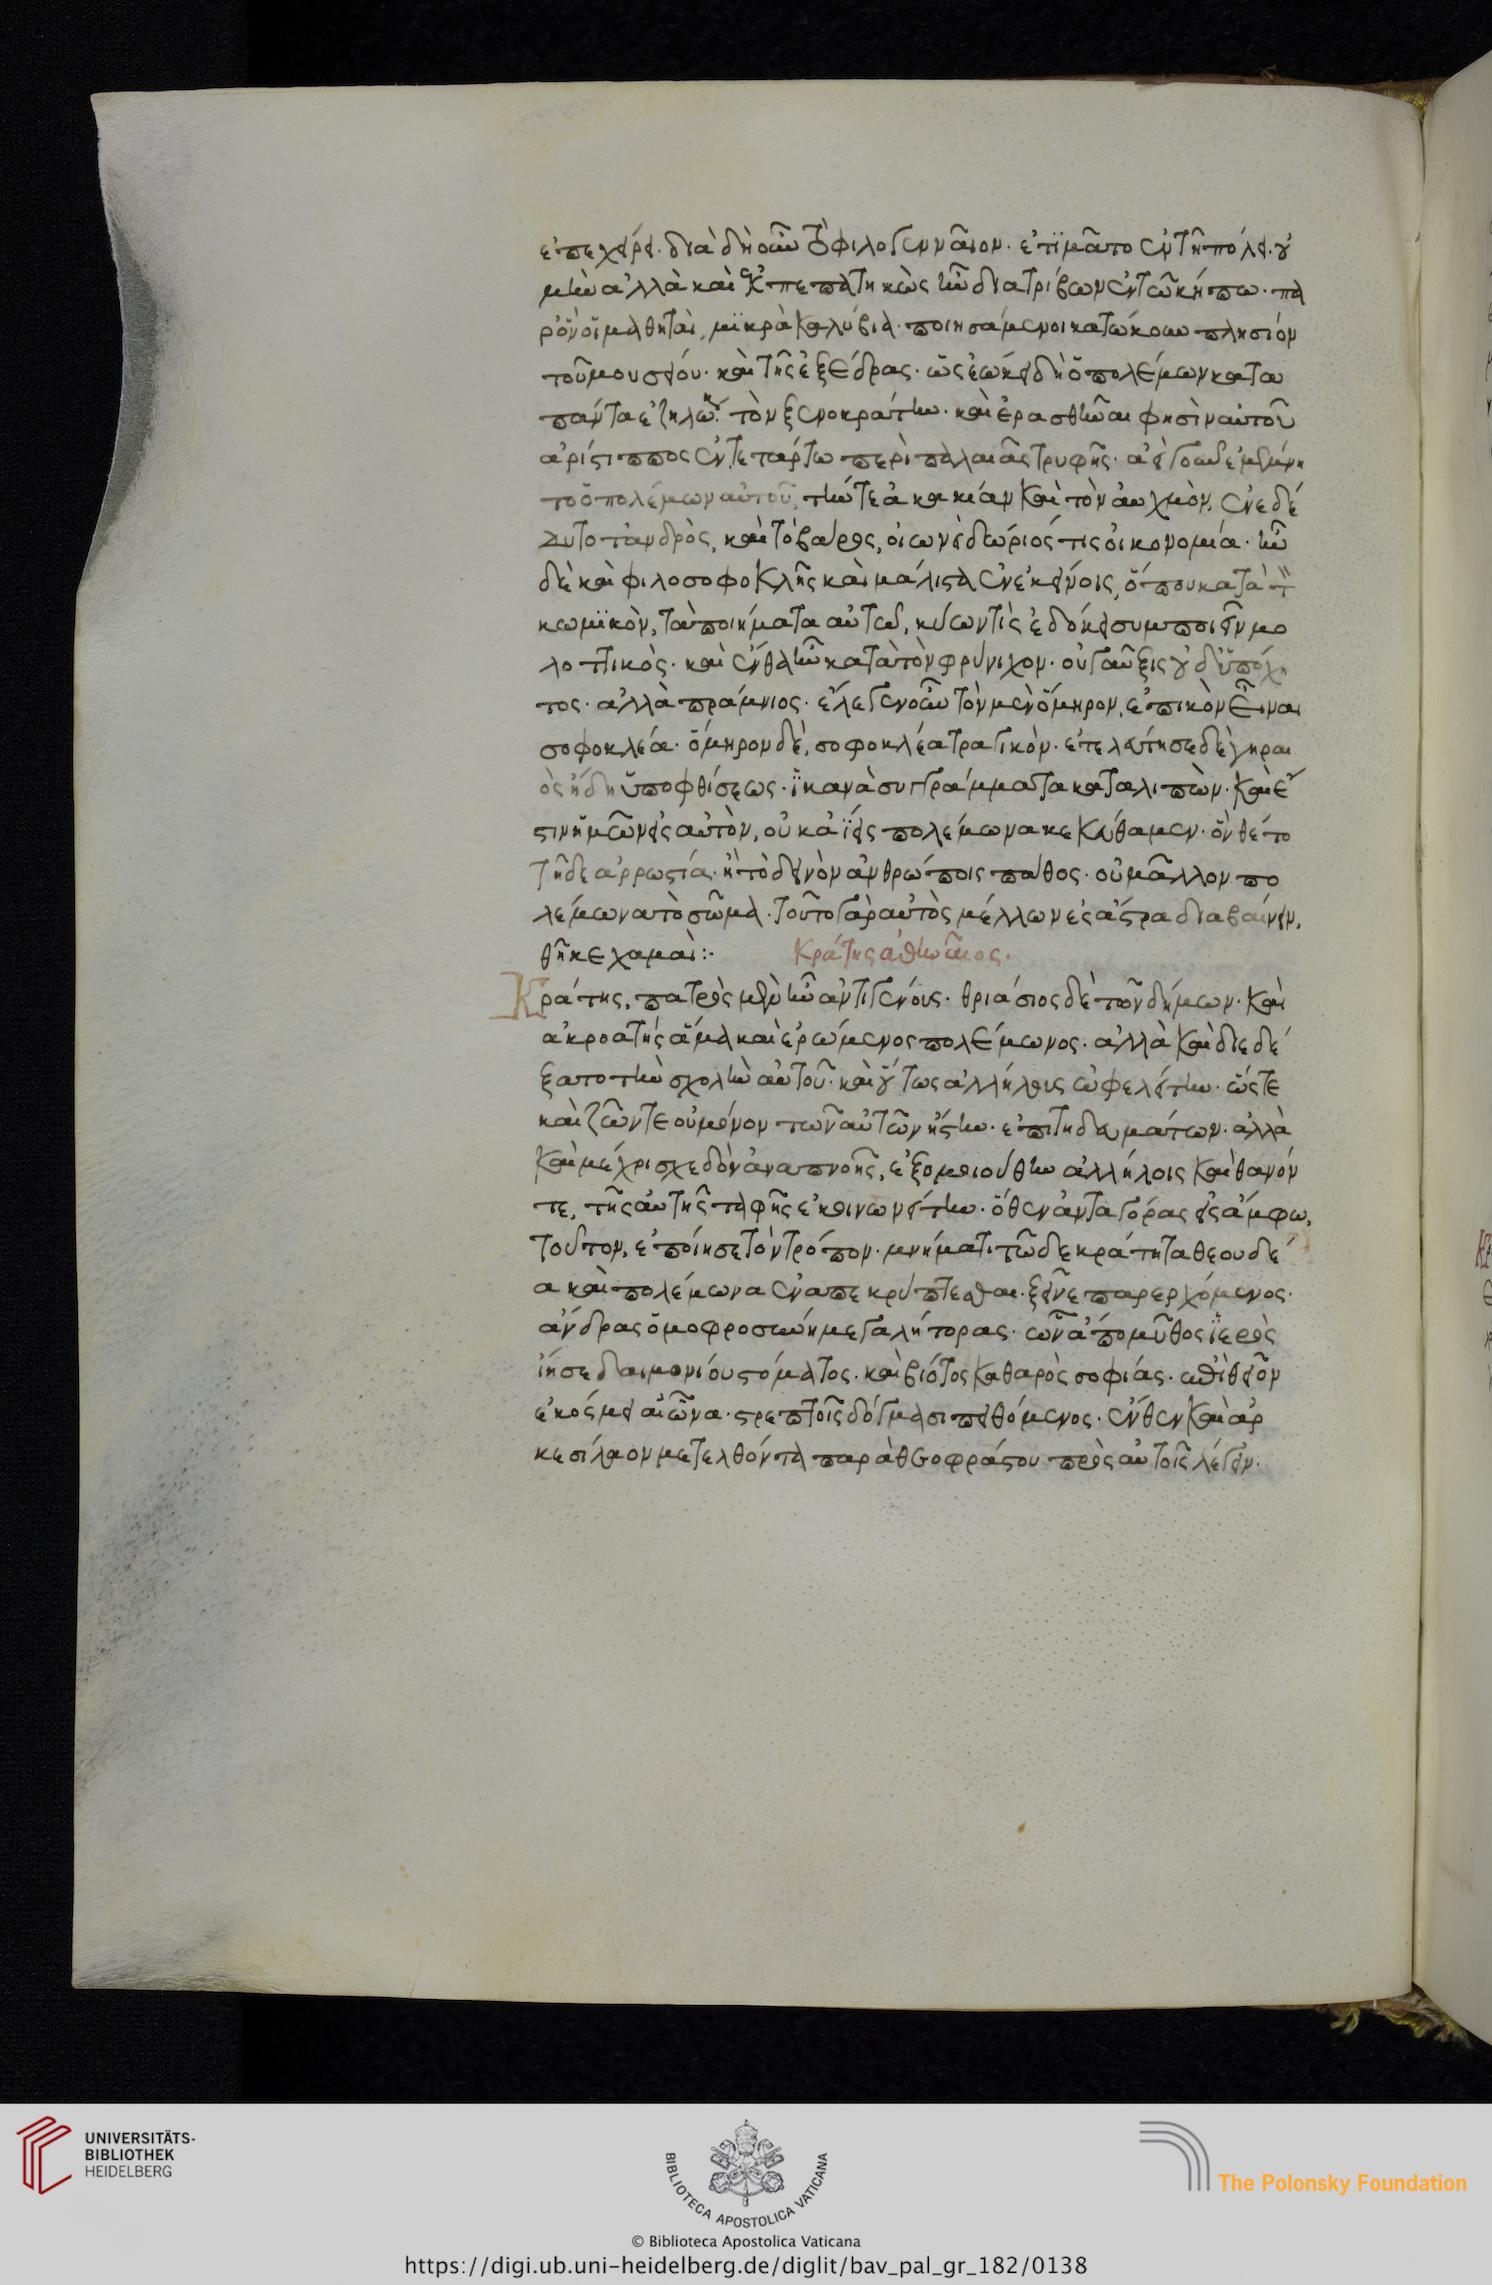 ἐπεχείρει. διὰ δὴ οὖν τὸ φιλογενναῖον. ἐτιμᾶτο ἐν τῆ πόλει. οὐ
μὴν ἀλλὰ καὶ ἐκπεπατηκὼς ἦν διατρίβων ἐν τῶ κήπω. πα
ρ' ὃν οἱ μαθηταὶ, μικρὰ καλύβια ποιησάμενοι κατώκουν πλησίον
τοῦ μουσείου. καὶ τῆς ἐξέδρας. ὡς ἐώκει δὴ ὁ πολέμων κατα
πάντα ἐζηλωκ τὸν ξενοκράτην. καὶ ἐρασθῆναι φησὶν αὐτοῦ
ἀρίστιππος ἐν τετάρτω περὶ παλαιᾶς τρυφῆς. ἀεὶ γοῦν ἐμέμνη
το ὁ πολέμων αὐτοῦ, τήν τε ἀκακίαν καὶ τὸν αὐχμὸν, ἐνεδέ
δυτο τἀνδρὸς, καὶ τὸ βάρος, οἱωνεὶ δώριός τις οἰκονομία. ἦν
δὲ καὶ φιλοσοφοκλῆς καὶ μάλιστα ἐν ἐκείνοις, ὅπου κατὰ τ
κωμικὸν, τὰ ποιήματα αὐτῶ, κύων τὶς ἐδόκει συμποιεῖν μο
λοττικὸς. καὶ ἔνθα ἦν κατὰ τὸν φρύνιχον. οὐ γαῦξις οὐδ' ὑπόχυ
τος. ἀλλὰ πράμνιος. ἔλεγεν οὖν τὸν μὲν ὅμηρον, ἐπικὸν εἶναι
σοφοκλέα. ὅμηρον δὲ, σοφοκλέα τραγικὸν. ἐτελεύτησε δὲ γηραι
ὸς ἤδη ὑπὸ φθίσεως. ἱκανὰ συγγράμματα καταλιπὼν. καὶ ἔ
στιν ἡμῶν εἰς αὐτὸν, οὐκ ἀΐεις πολέμωνα κεκεύθαμεν. ὃν θέτο
τῆδε ἀρρωστία. ἢ τὸ δεινὸν ἀνθρώποις πάθος. οὐ μᾶλλον πο
λέμωνα τὸ σῶμα. τοῦτο γὰρ αὐτὸς μέλλων ἐς ἄστρα διαβαίνειν,
θῆκε χαμαὶ:. Κράτης ἀθηναῖος.
Κράτης, πατρὸς μὲν ἦν ἀντιγένους. θριάσιος δὲ τῶν δήμων. καὶ
ἀκροατὴς ἅμα καὶ ἐρώμενος πολέμωνος. ἀλλὰ καὶ διεδέ
ξατο τὴν σχολὴν αὐτοῦ. καὶ οὕτως ἀλλήλους ὠφελείτην. ὥστε
καὶ ζῶντε οὐ μόνον τῶν αὐτῶν ἤστην. ἐπιτηδευμάτων. ἀλλὰ
καὶ μέχρι σχεδὸν ἀναπνοῆς, ἐξομοιούθην ἀλλήλοις καὶ θανόν
τε, τῆς αὐτῆς ταφῆς ἐκοινωνείτην. ὅθεν ἀνταγόρας εἰς ἄμφω,
τοῦτον, ἐποίησε τὸν τρόπον. μνήματι τῶδε κράτητα θεουδέ
α καὶ πολέμωνα ἐναπεκρύπτεσθαι. ξεῖνε παρερχόμενος.
ἄνδρας ὁμοφροσύνη μεγαλήτορας. ὧν ἄπο μῦθος ἱερὸς
ἤισε δαιμονίου στόματος. καὶ βίοτος καθαρὸς σοφίας. ἐπὶ θεῖον
ἐκόσμει αἰῶνα. στρεπτοῖς δόγμασι πειθόμενος. ἔνθεν καὶ ἀρ
κεσίλαον μετελθόντα παρὰ θεοφράστου πρὸς αὐτοὺς λέγειν.
UNIVERSITÄTS-
BIBLIOTHEK
HEIDELBERG
BIBLIOTECA APOSTOLICA VATICANA
The Polonsky Foundation
© Biblioteca Apostolica Vaticana
https://digi.ub.uni-heidelberg.de/diglit/bav_pal_gr_182/0138